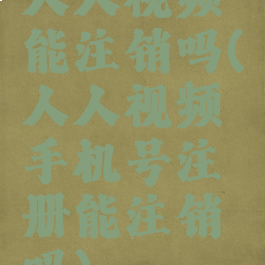 人人视频
能注销吗(
人人视频
手机号注
册能注销
吗)